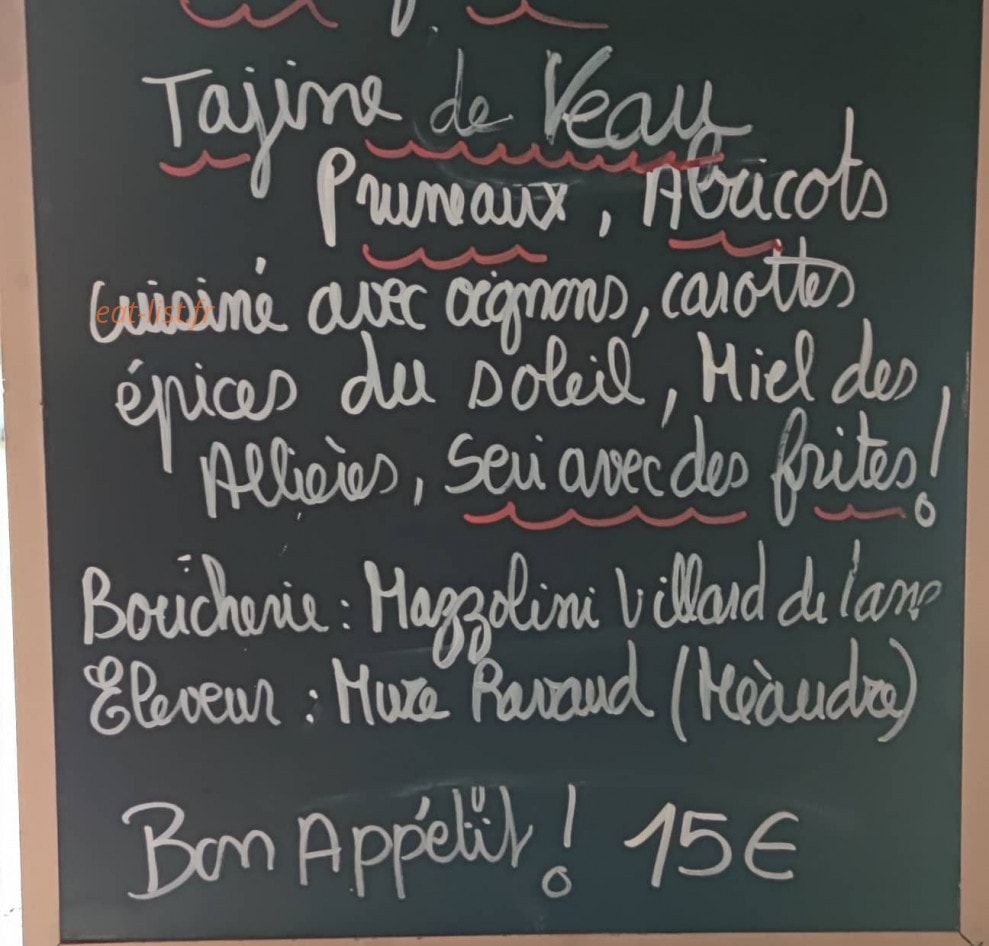 Tajine de Veau
Pruneaux, Abricots
Cuisiné avec oignons, carottes
eat-list.fr
épices du soleil, Miel des
Allières, Servi avec des frites!
Boucherie : Mazzolini Villard de lans
Éleveur : Mure Ravaud (Méaudre)
Bon Appétit! 15€